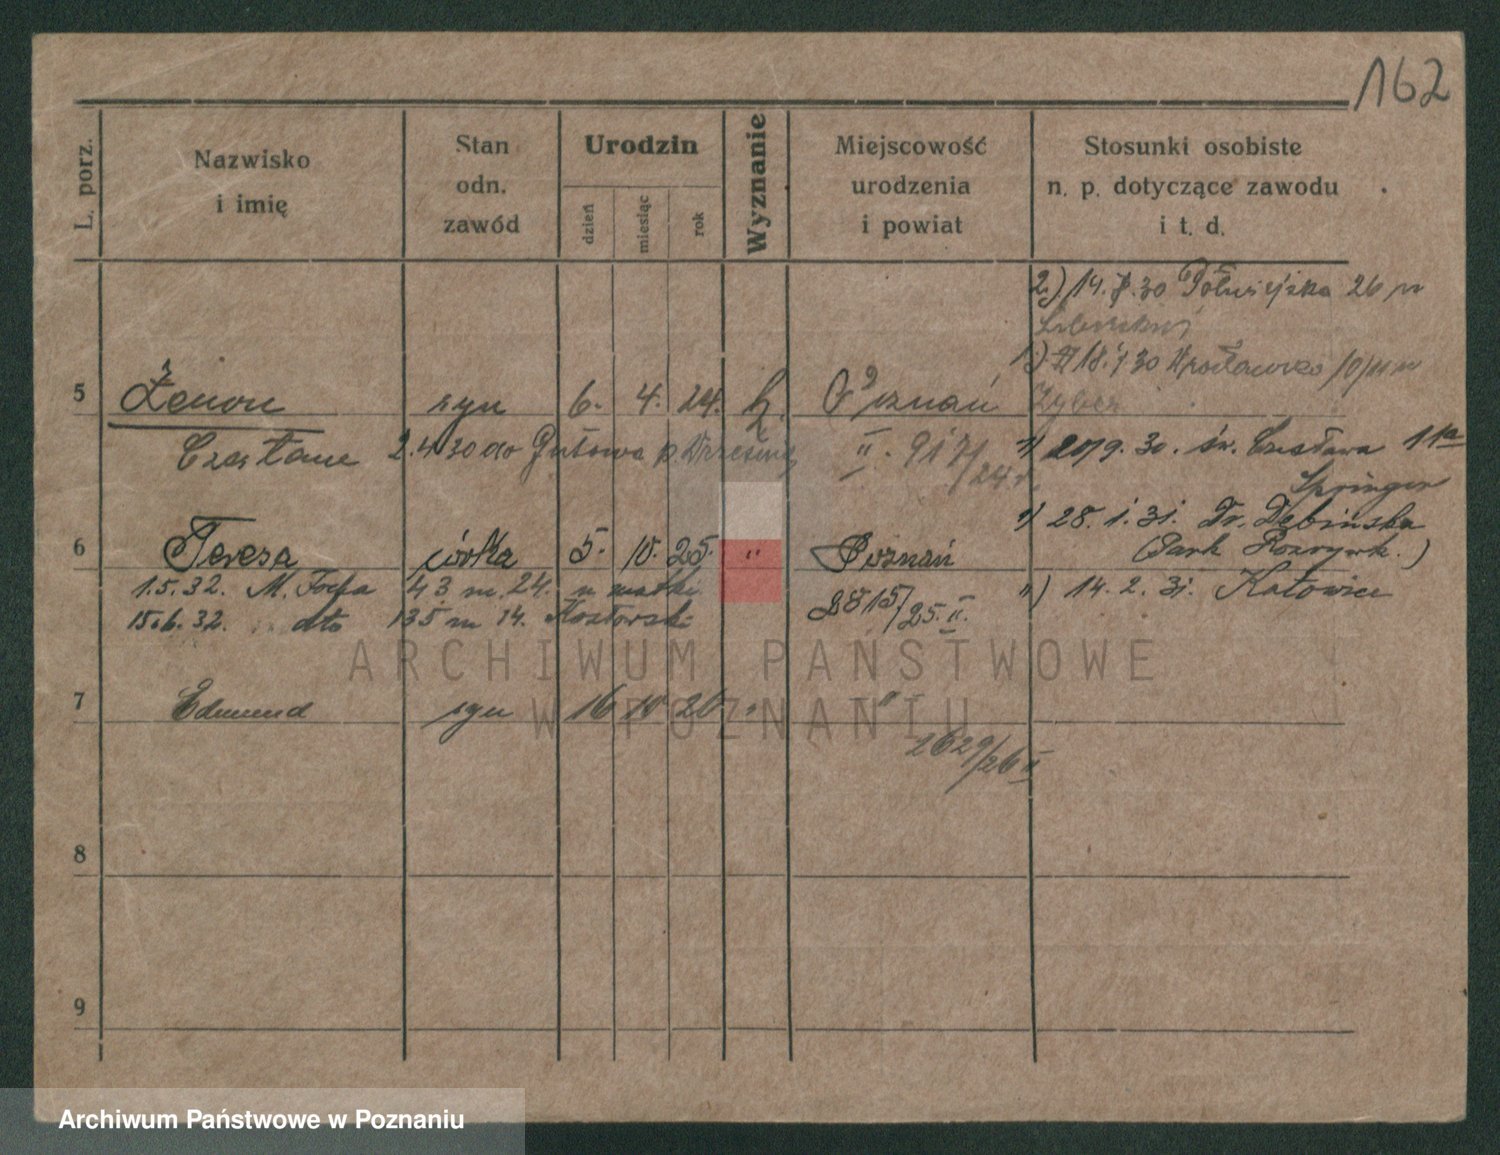 162
L. porz.
Nazwisko
i imię
Stan
odn.
zawód
Urodzin
dzień
miesiąc
rok
Wyznanie
Miejscowość
urodzenia
i powiat
Stosunki osobiste
n. p. dotyczące zawodu
i t. d.
2.) 14. 30 26
18. 30
5 Zenon syn 6. 4. 24. k. Poznań
Czesław 2.4.30 do Gutowa p. Września II. 917/24
20/9. 30. św. Czesława 11a
Springer
28. 1. 31. Dr. Dębińska
6 Teresa córka 5. 10. 25. " Poznań
(Park )
1.5.32. M. Focha 43 m. 24. u matki
2815/25. II.
14. 2. 31. Katowice
15.6.32. dto 135 m 14.
ARCHIWUM PAŃSTWOWE
W POZNANIU
7 Edmund syn 16 10 26 " "
2629/26 II
8
9
Archiwum Państwowe w Poznaniu